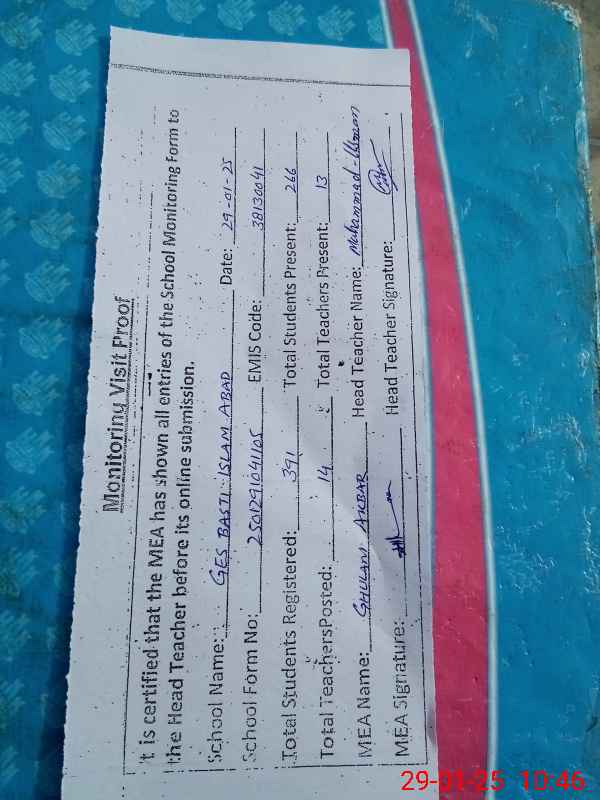 Monitoring Visit Proof
It is certified that the MEA has shown all entries of the School Monitoring Form to
the Head Teacher before its online submission.
School Name: GES BASTI ISLAM ABAD Date: 29-01-25
School Form No: 2501291041105 EMIS Code: 38130041
Total Students Registered: 391 Total Students Present: 266
Total TeachersPosted: 14 Total Teachers Present: 13
MEA Name: GHULAM AKBAR Head Teacher Name: Muhammad Usman
MEA Signature: Head Teacher Signature:
29-01-25 10:46